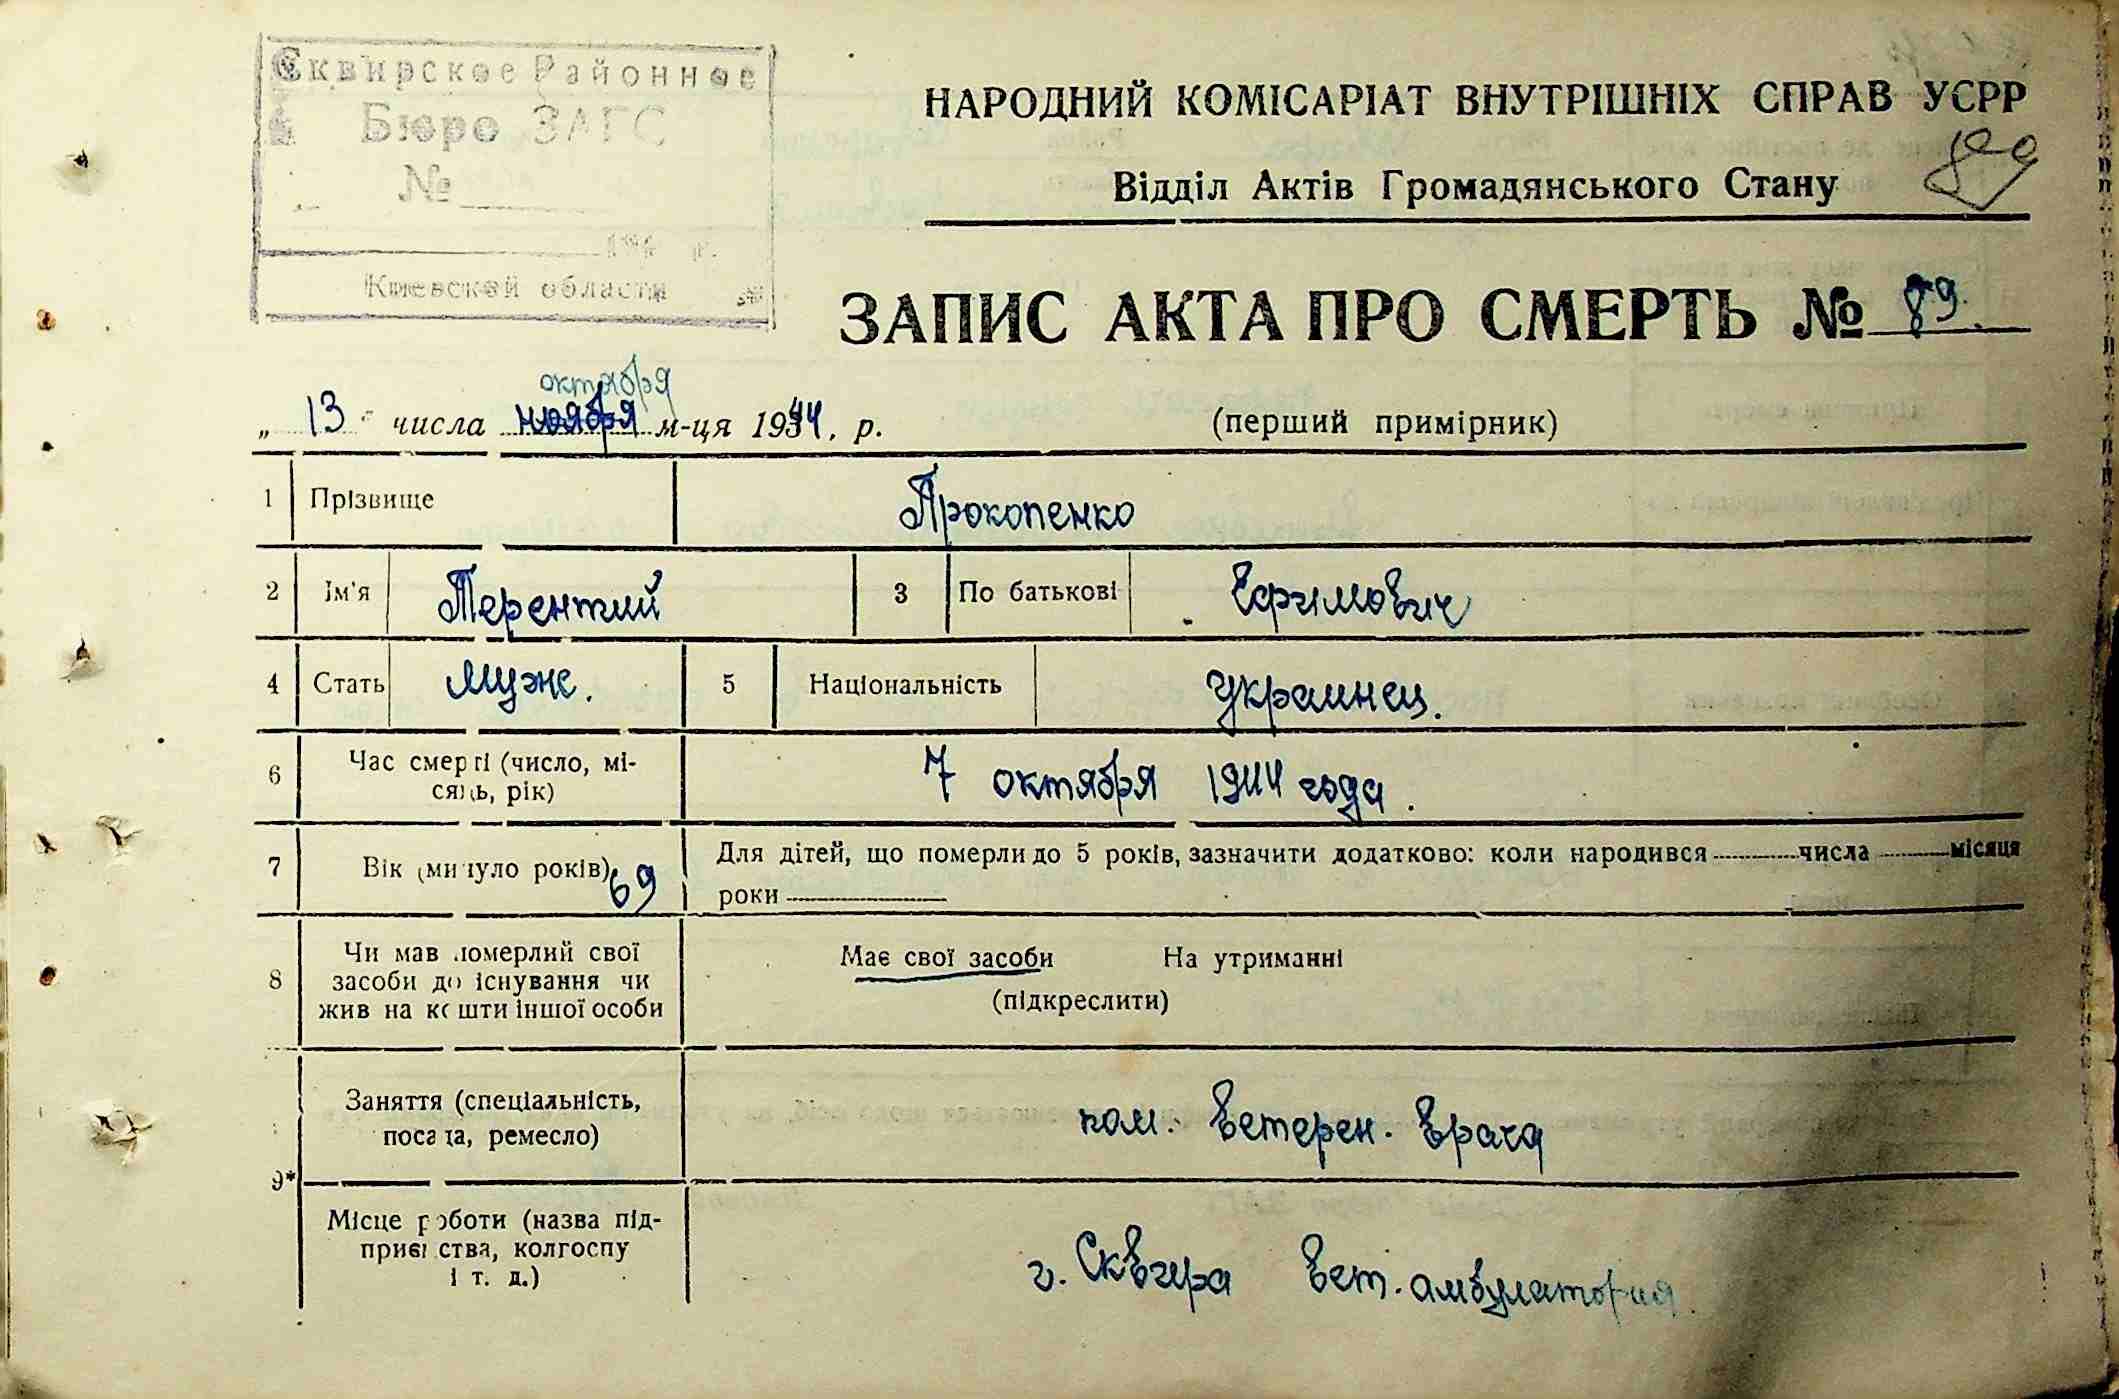 Сквирское Районное
Бюро ЗАГС
№
194 г.
Киевской области
НАРОДНИЙ КОМІСАРІАТ ВНУТРІШНІХ СПРАВ УСРР
Відділ Актів Громадянського Стану
89
ЗАПИС АКТА ПРО СМЕРТЬ № 89.
октября
„ 13 " числа ноября м-ця 1944, р. (перший примірник)
1 Прізвище Прокопенко
2 Ім'я Терентий 3 По батькові Ефимович
4 Стать муж. 5 Національність украинец.
6 Час смерті (число, мі-
сяць, рік) 7 октября 1944 года.
7 Вік (минуло років) 69 Для дітей, що померли до 5 років, зазначити додатково: коли народився числа місяця
роки
8 Чи мав померлий свої
засоби до існування чи
жив на кошти іншої особи
Має свої засоби На утриманні
(підкреслити)
9* Заняття (спеціальність,
посада, ремесло) пом. ветерен. врача
Місце роботи (назва під-
приємства, колгоспу
і т. д.) г. Сквира вет. амбулатория.